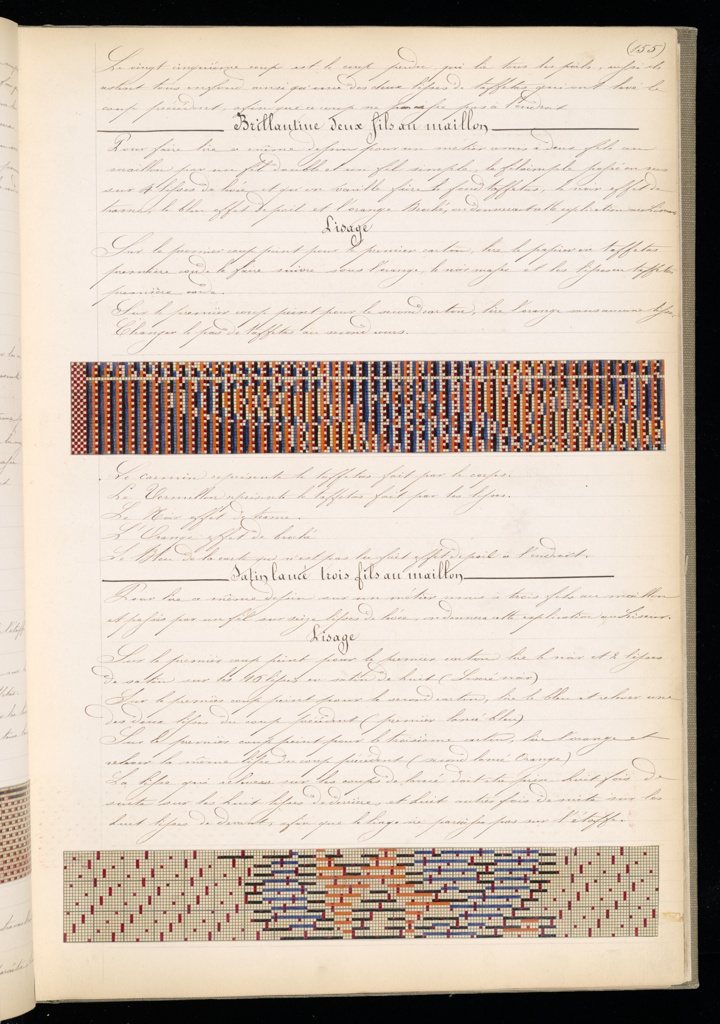 (155)
Le vingt cinquième coup est le coup perdu, qui lie tous les poils, aussi ils
restent tous enfoncés ainsi qu'une des deux lisses de taffetas qui ont levé le
coup précédent, afin que ce coup ne passe pas à l'endroit
Brillantine deux fils au maillon
Pour faire lire ce même dessin pour un métier armé à deux fils au
maillon par un fil double et un fil simple, le fil simple
sur 4 lisses de et qu'on veuille faire le fond taffetas, le noir effet de
trame, le bleu effet de poil et l'orange on donnera cette explication au liseur
Lisage
Sur le premier coup peint pour le premier carton, lire le papier en taffetas
première corde le faire suivre sous l'orange, le noir et les lisses en taffetas
première corde.
Sur le premier coup peint pour le second carton, lire l'orange sans aucune lisse,
Changer le pas de taffetas au second cours.
Le carmin représente le taffetas fait par le corps.
Le Vermillon représente le taffetas fait par les lisses.
Le Noir effet de trame.
L'Orange effet de
Le Bleu de la carte qui n'est pas lu fait effet de poil à l'endroit.
Satin lancé trois fils au maillon
Pour lire ce même dessin sur un métier armé à trois fils au maillon
et passés par un fil sur seize lisses de on donnera cette explication au liseur.
Lisage
Sur le premier coup peint pour le premier carton lire le noir et 2 lisses
de satin sur les 16 lisses en satin de huit (Lancé noir)
Sur le premier coup peint pour le second carton, lire le bleu et relever une
des deux lisses du coup précédent (premier lancé bleu)
Sur le premier coup peint pour le troisième carton, lire l'orange et
relever la même lisse du coup précédent (second lancé Orange)
La lisse qui relève sur les coups de lancé doit être prise huit fois de
suite sur les huit lisses de derrière, et huit autres fois de suite sur les
huit lisses de devant, afin que le ne paraisse pas sur l'étoffe.